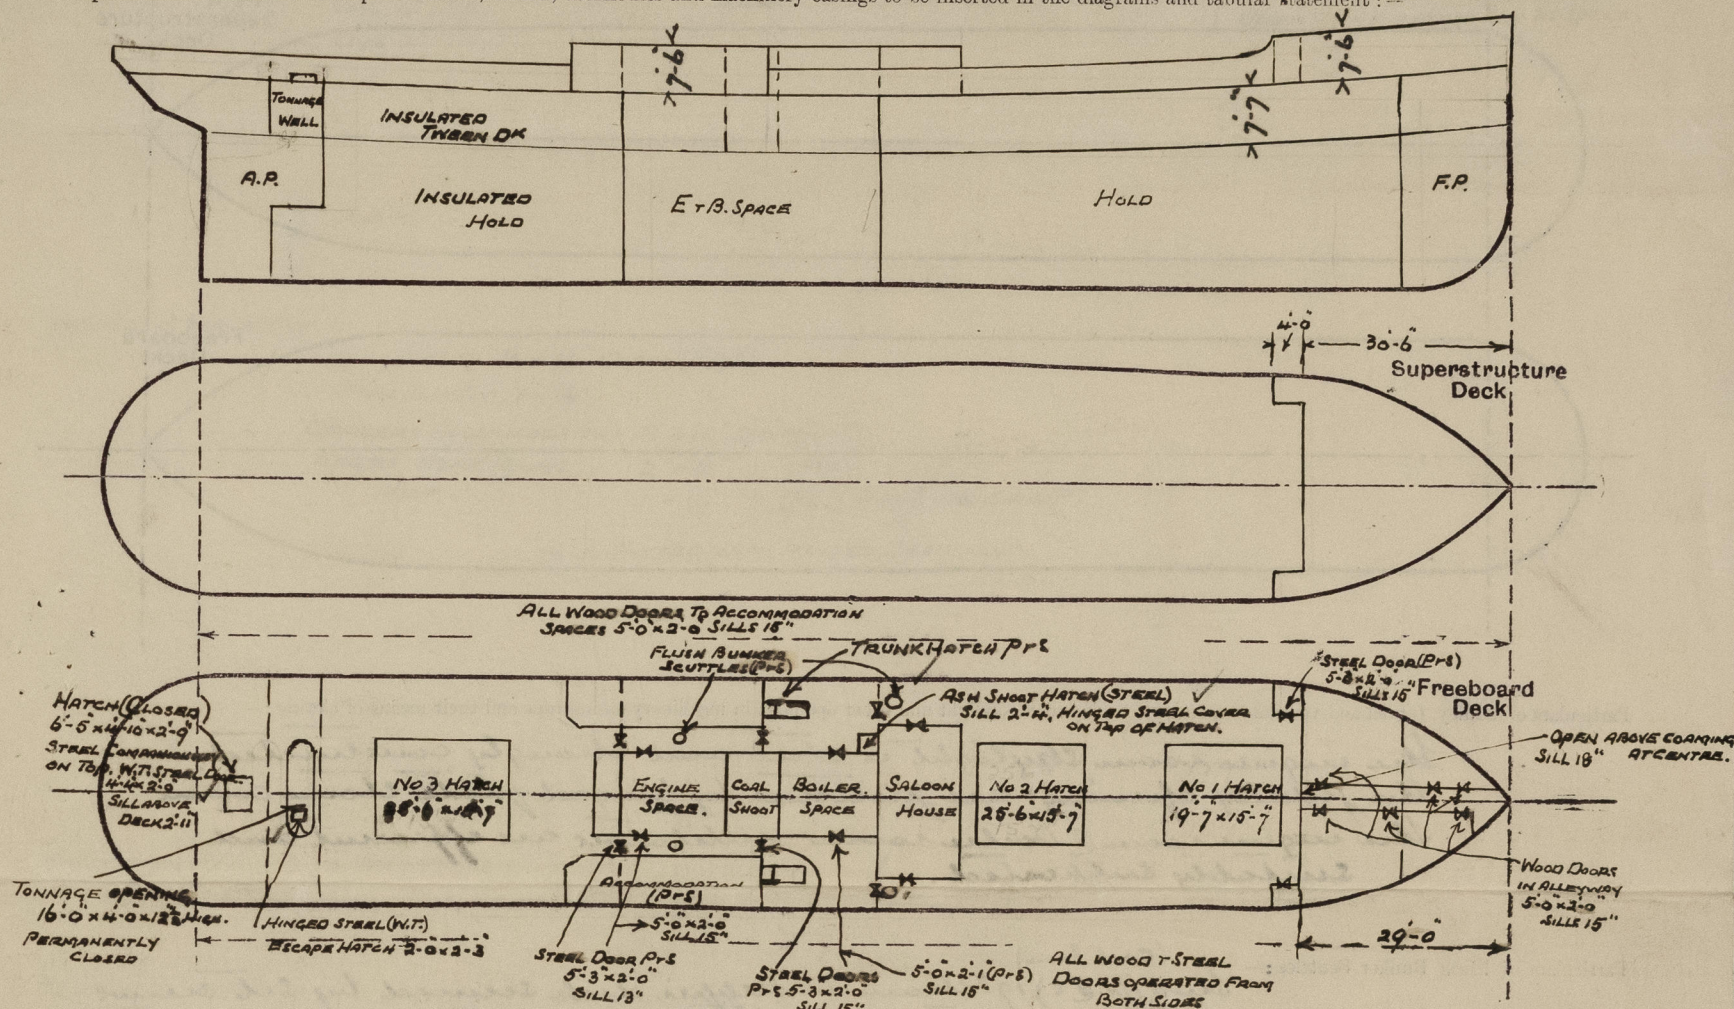 and machinery casings to be inserted in the diagrams and tabular statement :—
7'-6"
7'-6"
7'-7"
TONNAGE
WELL
INSULATED
TWEEN DK
A.P.
INSULATED
HOLD
E & B. SPACE
HOLD
F.P.
4'-0"
30'-6"
Superstructure
Deck
ALL WOOD DOORS TO ACCOMMODATION
SPACES 5'-0" x 2'-0" SILLS 15"
FLUSH BUNKER
SCUTTLES (P&S)
TRUNK HATCH P&S
STEEL DOOR (P&S)
SILLS 15"
Freeboard
Deck
ASH SHOOT HATCH (STEEL)
SILL 2'-4", HINGED STEEL COVER
ON TOP OF HATCH.
HATCH (CLOSED)
STEEL COMPANION
ON TOP. W.T. STEEL DOOR
SILL ABOVE
DECK 2'-11"
OPEN ABOVE COAMING
SILL 18" AT CENTRE.
No 3 HATCH
ENGINE
SPACE.
COAL
SHOOT
BOILER
SPACE
SALOON
HOUSE
No 2 HATCH
25'-6" x 15'-7"
No 1 HATCH
19'-7" x 15'-7"
WOOD DOORS
IN ALLEYWAY
5'-0" x 2'-0"
SILLS 15"
TONNAGE OPENING
PERMANENTLY
CLOSED
HINGED STEEL (W.T.)
ESCAPE HATCH 2'-0" x 2'-3"
ACCOMMODATION
(P&S)
5'-0" x 2'-0"
SILL 15"
STEEL DOOR P&S
5'-3" x 2'-0"
SILL 13"
STEEL DOORS
P&S 5'-3" x 2'-0"
SILL 15"
5'-0" x 2'-1" (P&S)
SILL 15"
ALL WOOD & STEEL
DOORS OPERATED FROM
BOTH SIDES
29'-0"